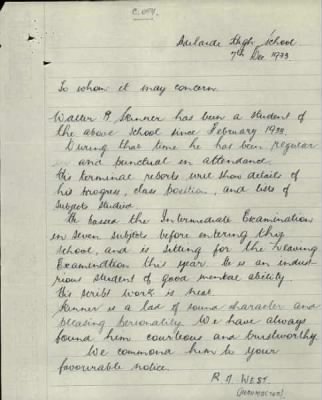 COPY.
Adelaide High School
7th Dec 1933
To whom it may concern
Walter P. Skinner has been a student of
the above school since February 1933.
During that time he has been regular
and punctual in attendance.
His terminal reports will show details of
his progress, class position, and lists of
subjects studied.
He passed the Intermediate Examination
in seven subjects before entering this
school, and is sitting for the Leaving
Examination this year. He is an indust-
rious student of good mental ability.
His script work is neat.
Skinner is a lad of sound character and
pleasing personality. We have always
found him courteous and trustworthy.
We commend him to your
favourable notice.
R A WEST.
(HEADMASTER)